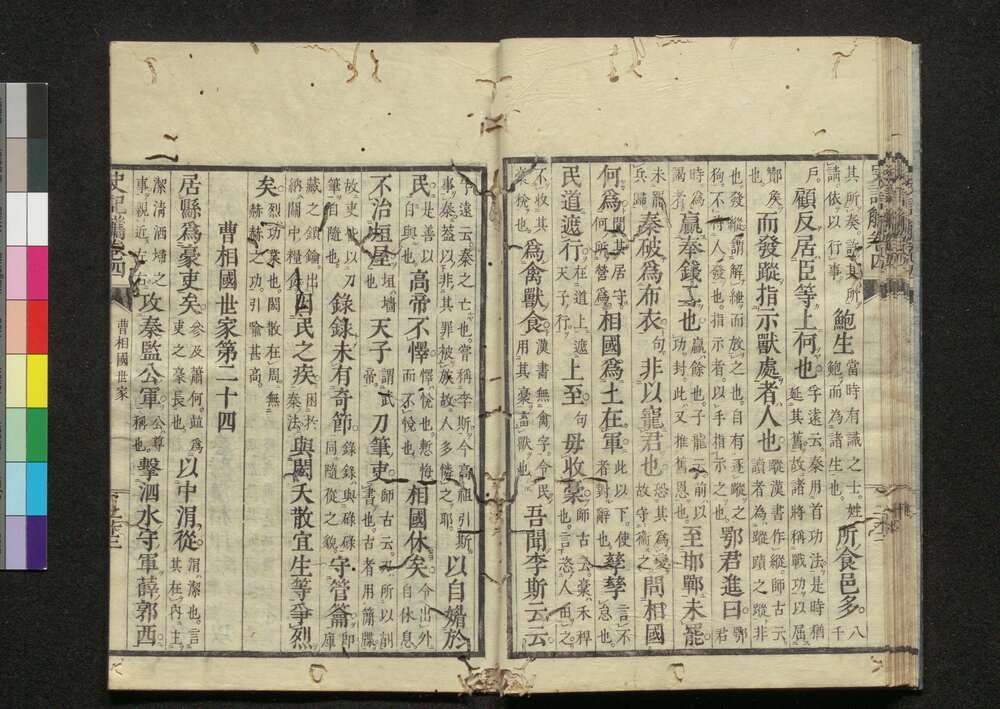 其所奏許其所請依以行事 鮑生 當時有識之士姓鮑而為諸生也 所食邑多 八千
戶 顧反居臣等上何也 孚遠云秦用首功法是時猶延其舊故諸將稱戰功以屈
鄼矣也 而發蹤指示獸處者人也 蹤漢書作縱師古云讀者為蹤蹟之蹤非
也發縱謂解紲而放之也自有逐蹤之狗不待人發也指示者以手指示之也 鄂君進曰 鄂君
時為謁者 嬴奉錢二也 嬴餘也子龍二之前以功封此又推舊恩也 至邯鄲未罷
未罷兵歸 秦破為布衣 句 非以寵君也 恐其為變故守衛之 問相國
何為 問其居守何所營為 相國為上在軍 此以下使者對辭也 孳孳 言不怠也
民道遮行 在道上遮天子行 上至 句 毋收稾 師古云稾禾稈也言恣人田之
不收其稾稅也 為禽獸食 漢書無禽字令民用其稾畜獸也 吾聞李斯云云
孚遠云秦之亡也嘗稱李斯今高祖引斯事蓋以非其罪被族故人多憐之耶 以自媚於
民 是善以自與也 高帝不懌 懌悅也慙悔而不悅也 相國休矣 令出外自休息
不治垣屋 垣墻也 天子 謂武帝 刀筆吏 師古云刀所以削書也古者用簡牒
故吏皆以刀筆自隨也 錄錄未有奇節 錄錄與碌碌同隨從之貌 守管籥 即庫
藏之鎖鑰出納關中糧食 因民之疾 困於秦法 與閎夭散宜生等爭烈
矣 烈功業也閎散在周無赫赫之功引喻甚高
曹相國世家第二十四
居縣為豪吏矣 參及蕭何並為吏之豪長也 以中涓從 涓潔也言其在內主
潔清洒埽之事親近左右 攻秦監公軍 公尊稱也 擊泗水守軍薛郭西
史記 卷四
曹相國世家